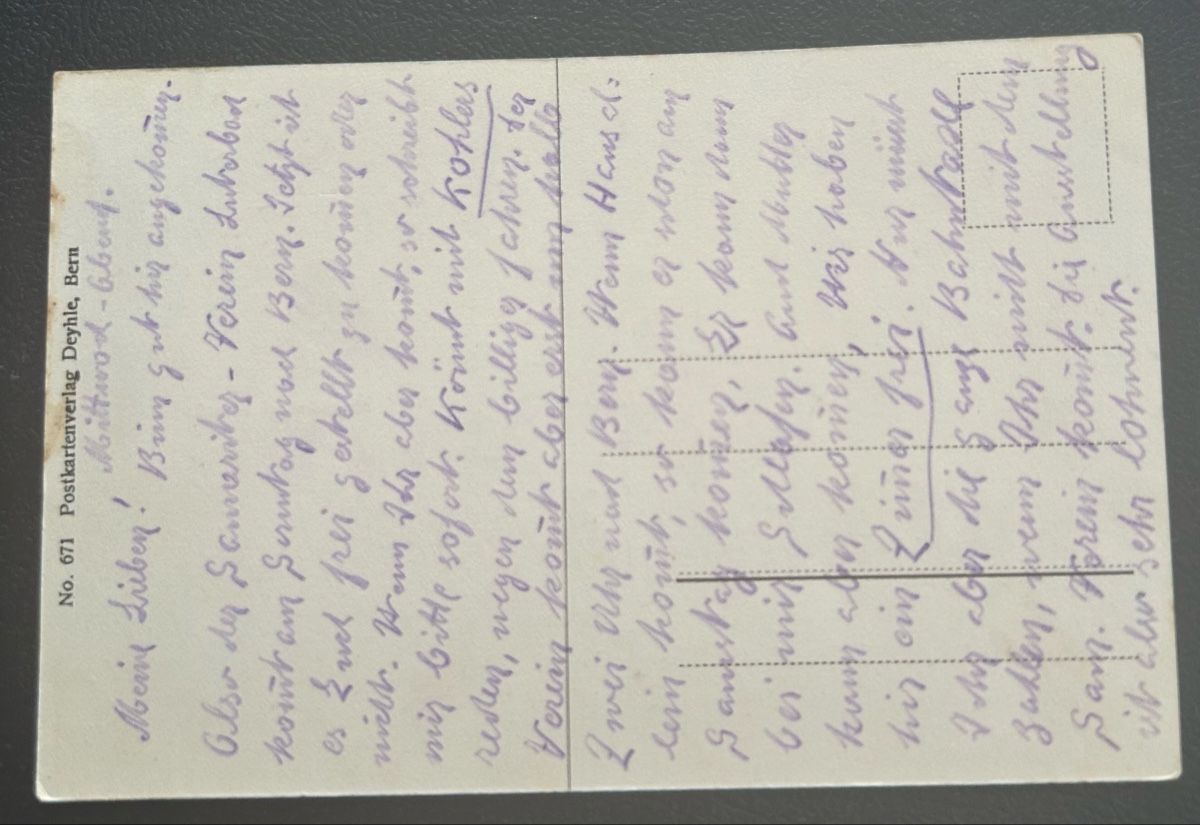 No. 671 Postkartenverlag Deyhle, Bern
Mittwoch-Abend.
Meine Lieben! Bin gut hier angekom̄en.
Also der Samariter-Verein
kom̄t am Sonntag nach Bern. Jetzt ist
es Euch frei gestellt zu kom̄en oder
nicht. Wenn Ihr aber kom̄t, so schreibt
mir bitte sofort. Kön̄t mit Kohlers
reden, wegen dem billig fahren. Der
Verein kom̄t aber erst um halb
Zwei Uhr nach Bern. Wenn Hansel-
lein kom̄t, so kann er schon am
Samstag kom̄en, Er kann dann
bei mir Schlafen. Auch Mutter
kann aber kom̄en, Wir haben
hier ein Zim̄er frei. Nur müsst
Ihr aber die ganze Bahntaxe
zahlen, wenn Ihr nicht mit dem
Sam. Verein kom̄t. Die Ausstellung
ist aber sehr lohnent.